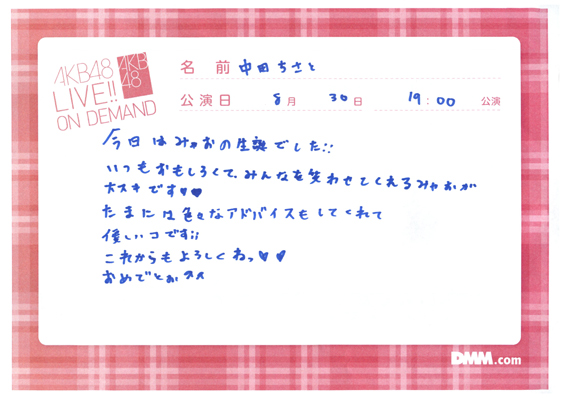 AKB48
LIVE!!
ON DEMAND
AKB
48
名 前 中田ちさと
公演日 8月 30日 19:00 公演
今日はみゃおの生誕でした!!
いつもおもしろくて、みんなを笑わせてくれるみゃおが
大スキです♥♥
たまには色々なアドバイスもしてくれて
優しいコです!!
これからもよろしくねっ♥♥
おめでとぉ^^
DMM.com